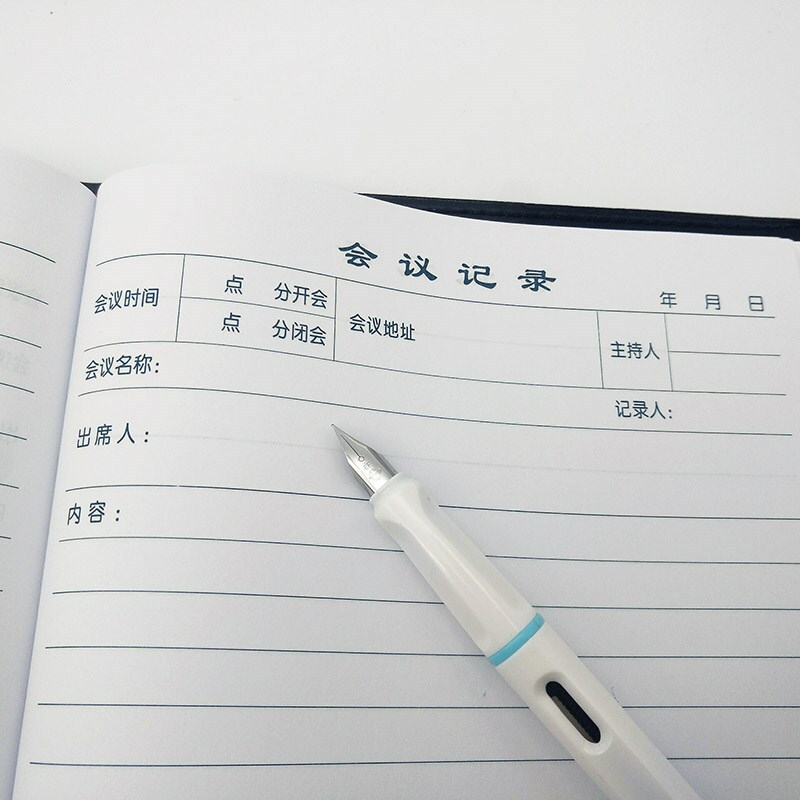 会议记录
年 月 日
会议时间
点 分开会
点 分闭会
会议地址
主持人
会议名称:
记录人:
出席人:
内容: